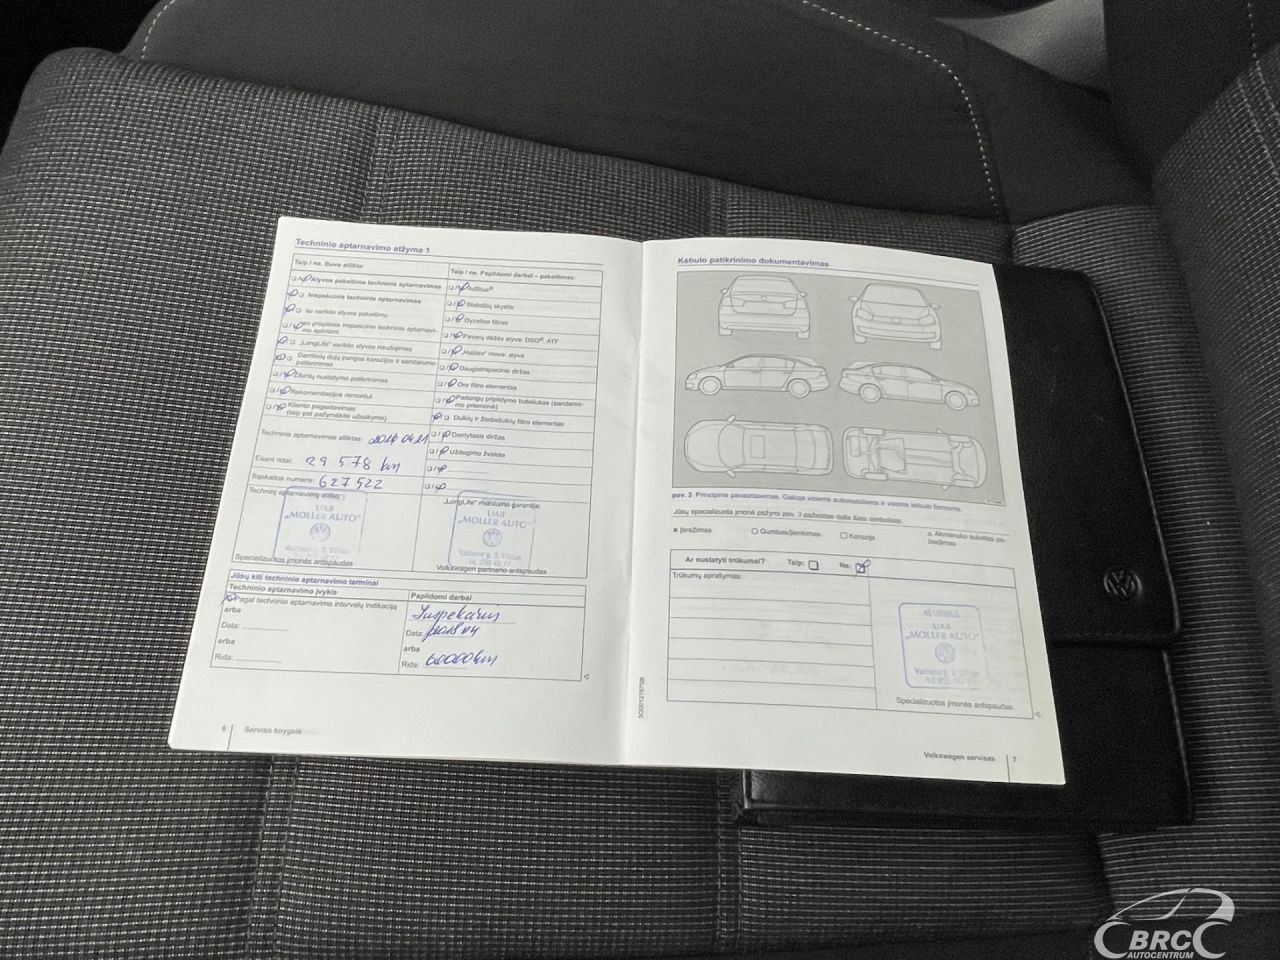 Techninio aptarnavimo atžyma 1
Taip / ne. Buvo atlikta:
Alyvos pakeitimo techninis aptarnavimas
Inspekcinis techninis aptarnavimas
su variklio alyvos pakeitimu
su praplėsta inspekcinio techninio aptarnavi-
mo apimtimi
„LongLife“ variklio alyvos naudojimas
Gamtinių dujų įrangos korozijos ir sandarumo
patikrinimas
Žibintų nustatymo patikrinimas
Rekomendacijos remontui
Kliento pageidavimas
(taip pat pažymėkite užsakyme)
Techninis aptarnavimas atliktas:
Esant ridai: 29 578 km
Sąskaitos numeris: 627522
Techninį aptarnavimą atliko:
UAB
„MOLLER AUTO“
Specializuotos įmonės antspaudas
Taip / ne. Papildomi darbai – pakeitimas:
AdBlue®
Stabdžių skystis
Dyzelino filtras
Pavarų dėžės alyva: DSG®, ATF
„Haldex“ mova: alyva
Daugiatarpeclnis diržas
Oro filtro elementas
Padangų pripildymo buteliukas (sandarini-
mo priemonė)
Dulkių ir žiedadulkių filtro elementas
Dantytasis diržas
Uždegimo žvakės
„LongLife“ mobilumo garantija:
UAB
„MOLLER AUTO“
Volkswagen partnerio antspaudas
Jūsų kiti techninio aptarnavimo terminai
Techninio aptarnavimo įvykis
Papildomi darbai
Pagal techninio aptarnavimo intervalų indikaciją
arba
Data:
arba
Rida:
Data:
arba
Rida: 60000 km
6 Serviso knygelė
Kėbulo patikrinimo dokumentavimas
pav. 3 Principinis pavaizdavimas. Galioja visiems automobiliams ir visoms kėbulo formoms.
Jūsų specializuota įmonė pažymi pav. 3 pažeistas dalis šiais simboliais:
Įbrėžimas
Gumbas/įlenkimas
Korozija
Akmenuko sukeltas pa-
žeidimas
Ar nustatyti trūkumai? Taip: Ne:
Trūkumų aprašymas:
UAB
„MOLLER AUTO“
Specializuotos įmonės antspaudas
Volkswagen servisas 7
BRC
AUTOCENTRUM